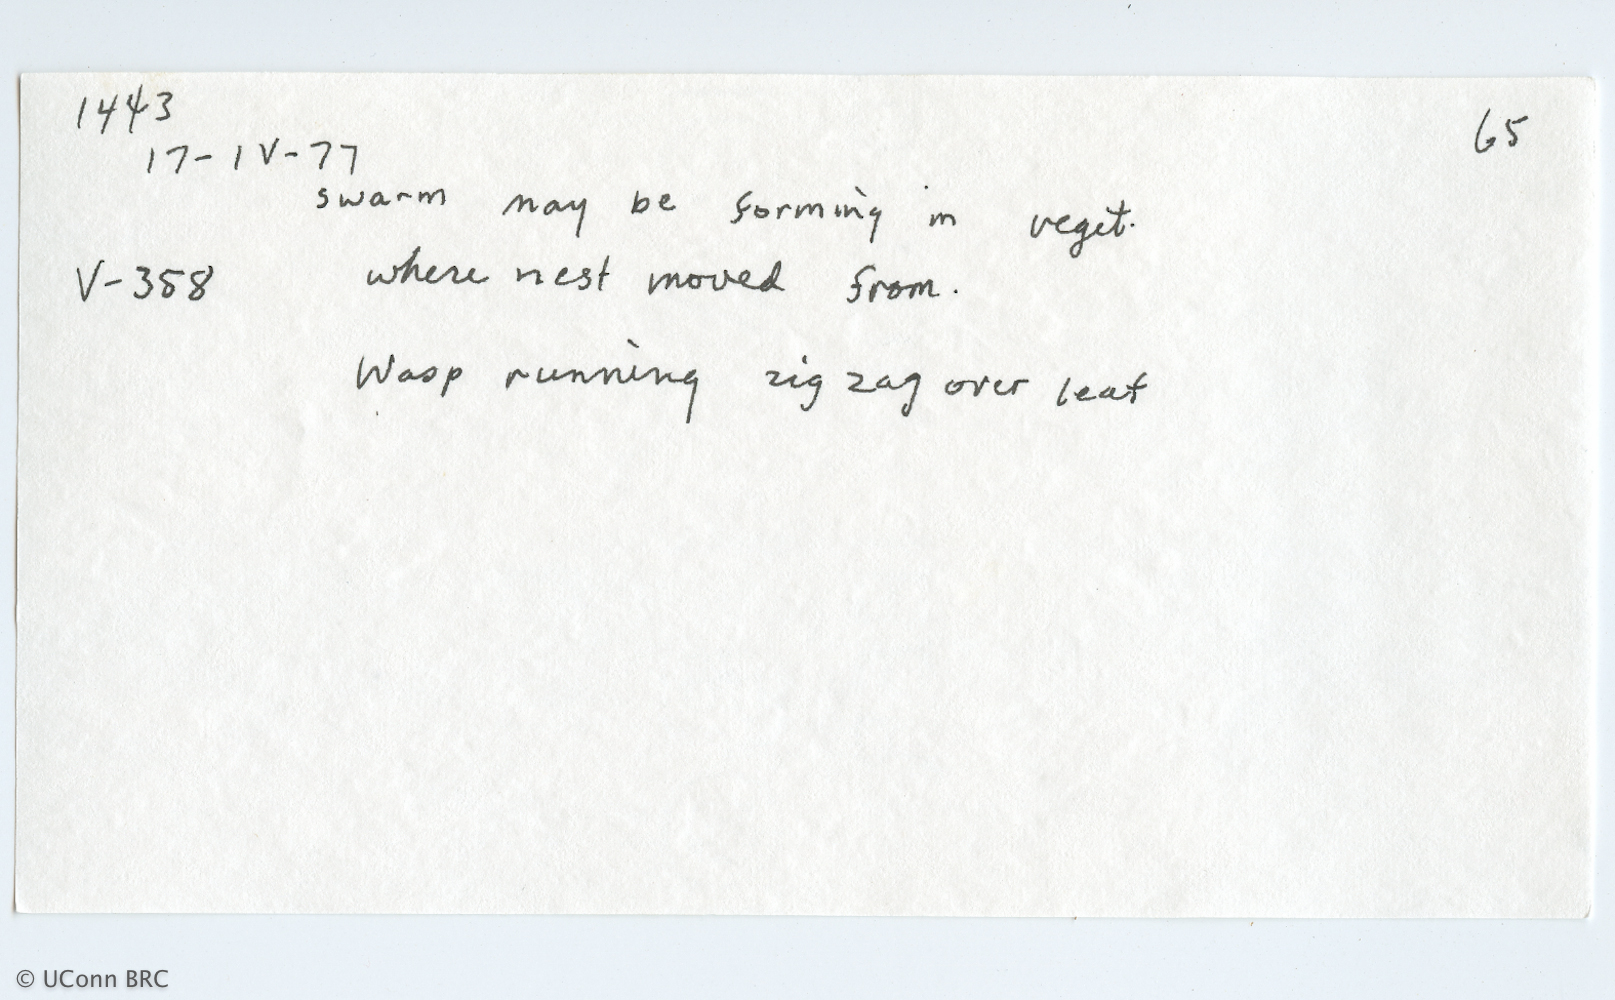 1443
65
17-IV-77
swarm may be forming in veget.
V-358 where nest moved from.
Wasp running zig zag over leaf
© UConn BRC